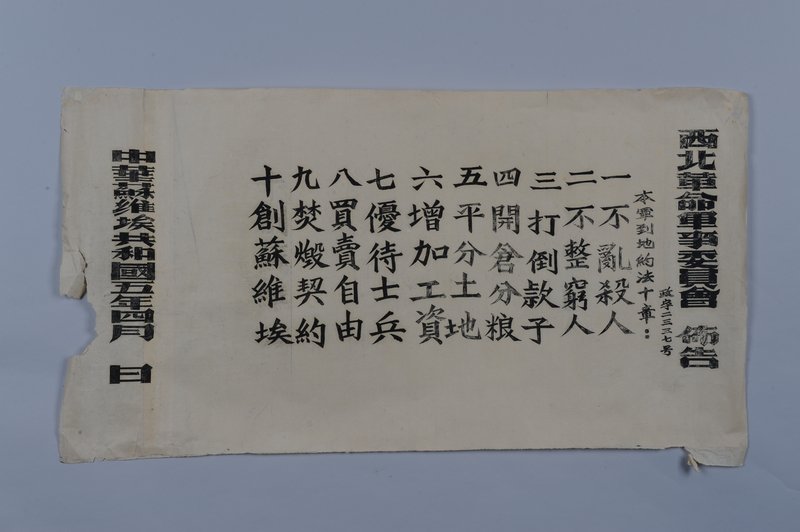 西北革命軍事委員會 佈告
政字二三三七号
本軍到地約法十章：
一不亂殺人
二不整窮人
三打倒欵子
四開倉分粮
五平分土地
六增加工資
七優待士兵
八買賣自由
九焚燬契約
十創蘇維埃
中華蘇維埃共和國五年四月 日